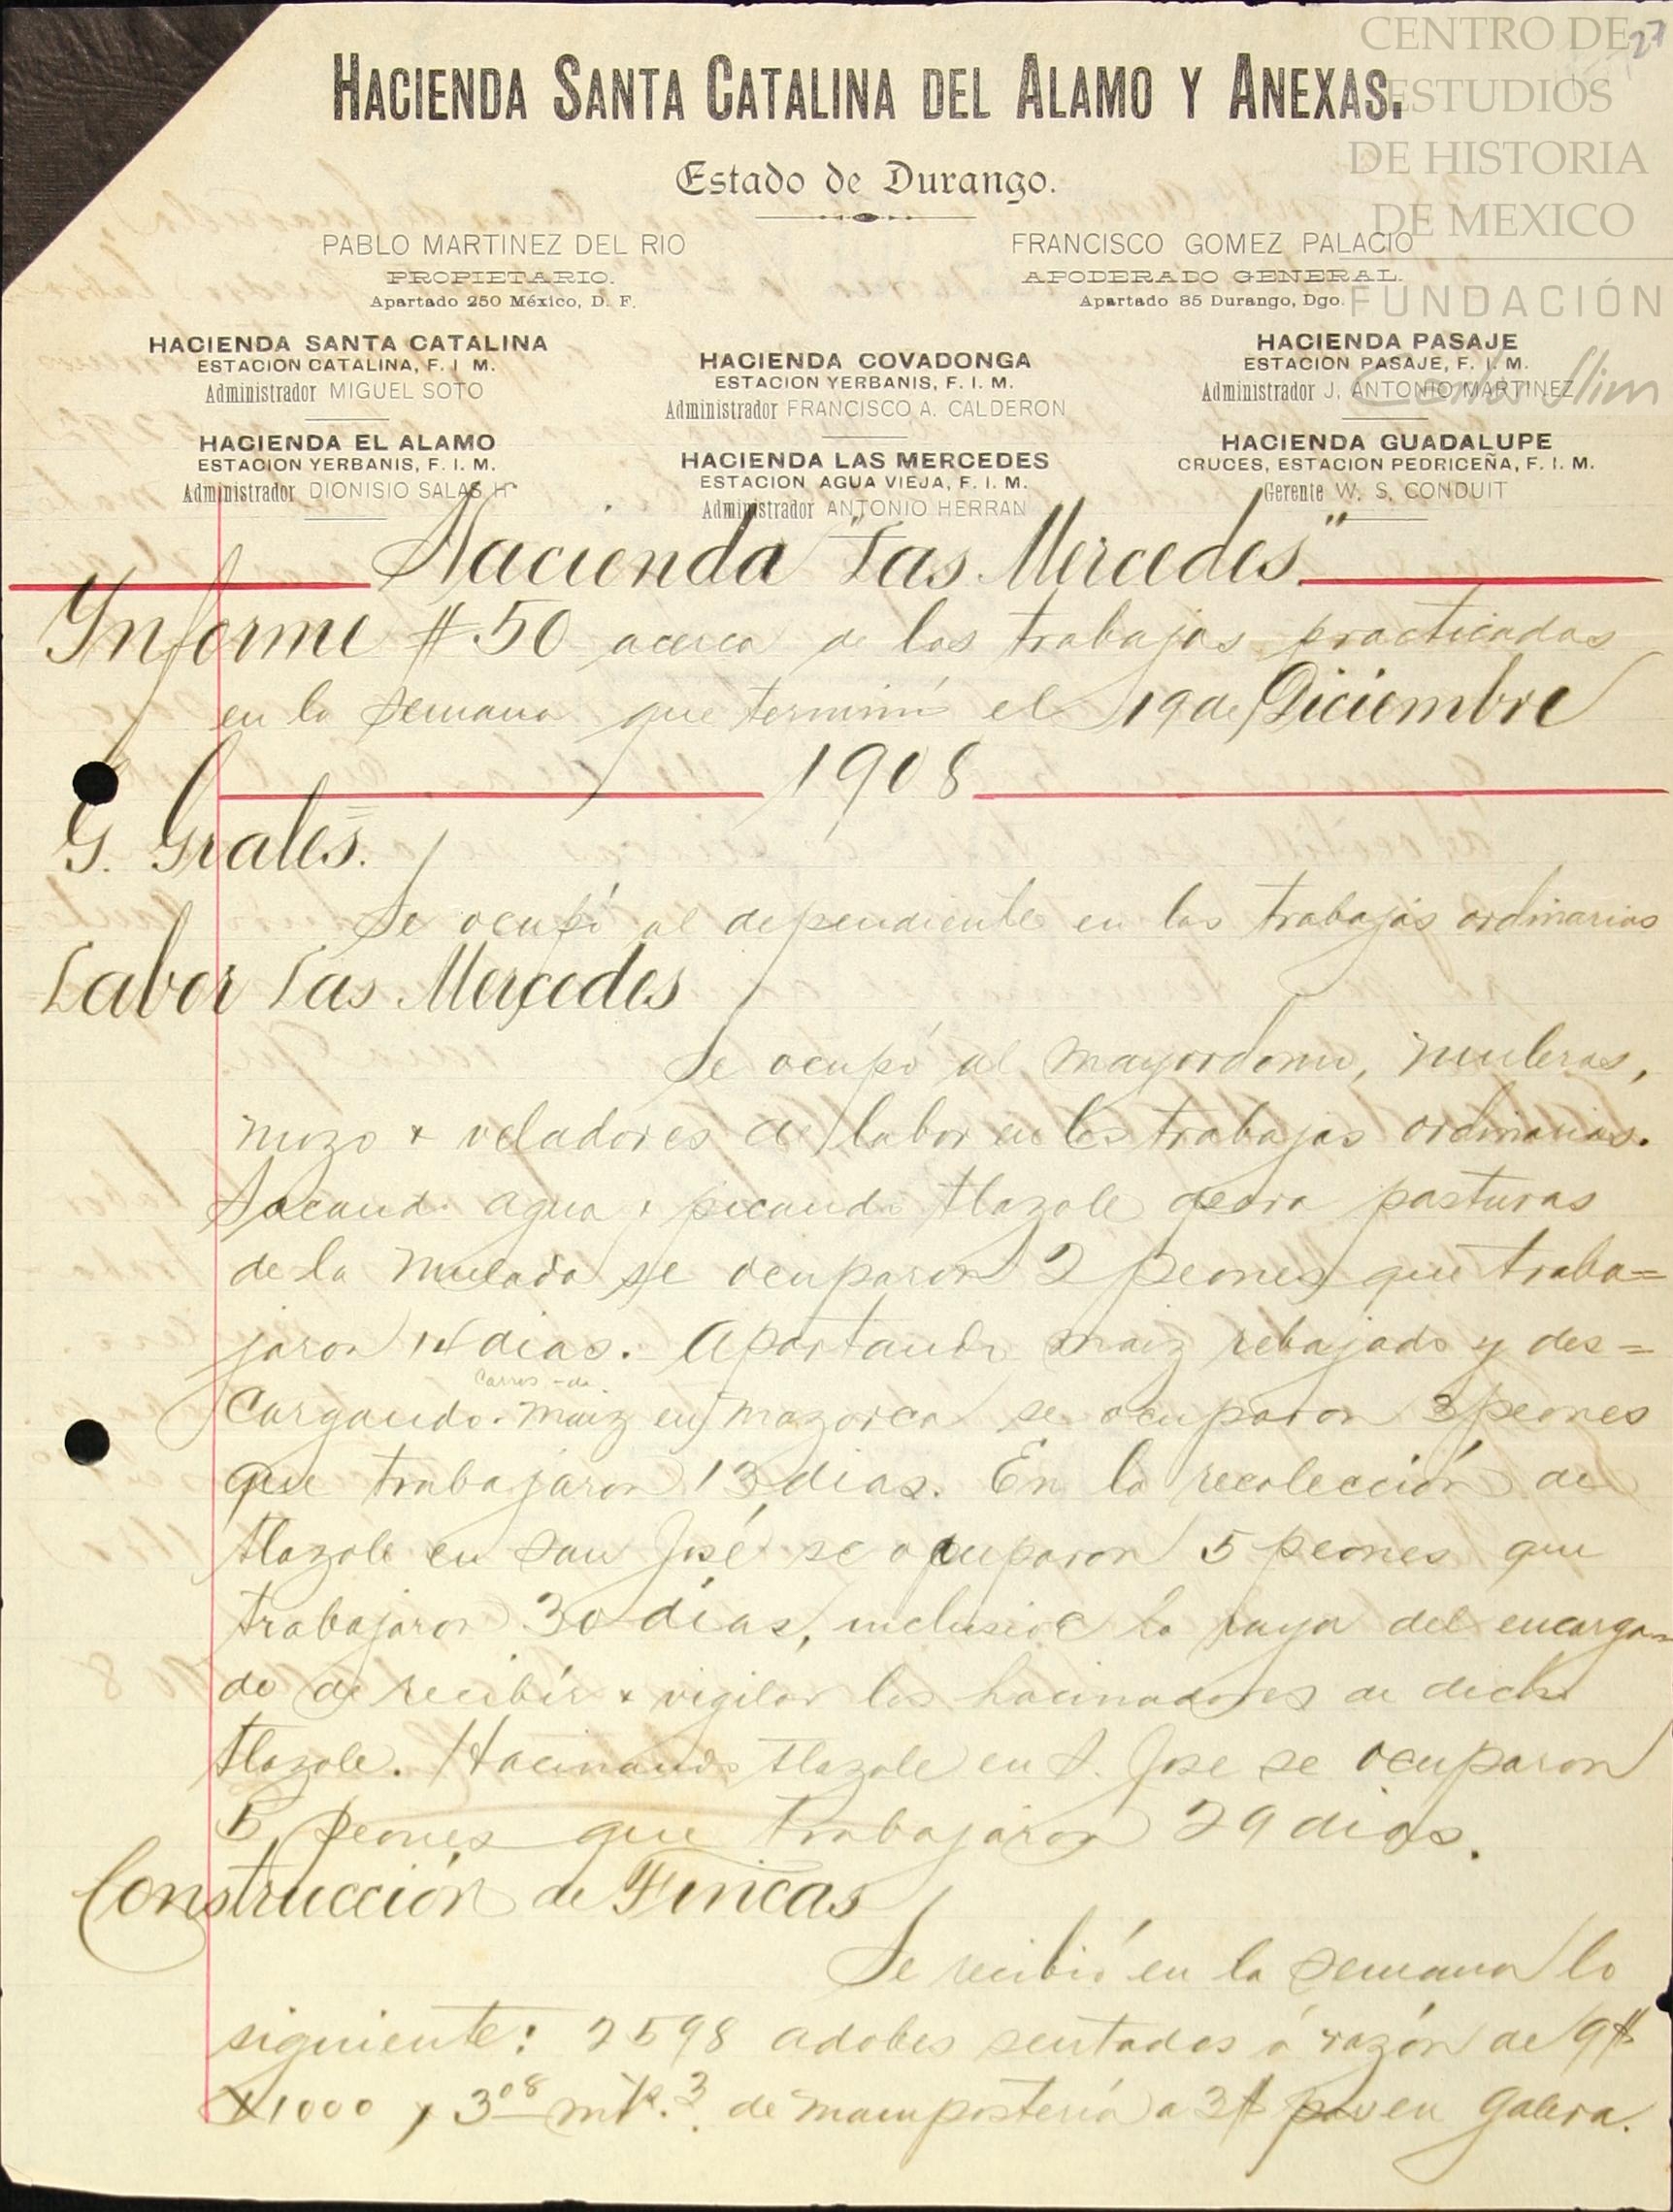 CENTRO DE
ESTUDIOS
DE HISTORIA
DE MEXICO
FUNDACIÓN
Carlos Slim
27
HACIENDA SANTA CATALINA DEL ALAMO Y ANEXAS.
Estado de Durango.
PABLO MARTINEZ DEL RIO
PROPIETARIO.
Apartado 250 México, D. F.
FRANCISCO GOMEZ PALACIO
APODERADO GENERAL.
Apartado 85 Durango, Dgo.
HACIENDA SANTA CATALINA
ESTACION CATALINA, F. I M.
Administrador MIGUEL SOTO
HACIENDA COVADONGA
ESTACION YERBANIS, F. I. M.
Administrador FRANCISCO A. CALDERON
HACIENDA PASAJE
ESTACION PASAJE, F. I. M.
Administrador J. ANTONIO MARTINEZ
HACIENDA EL ALAMO
ESTACION YERBANIS, F. I. M.
Administrador DIONISIO SALAS H
HACIENDA LAS MERCEDES
ESTACION AGUA VIEJA, F. I. M.
Administrador ANTONIO HERRAN
HACIENDA GUADALUPE
CRUCES, ESTACION PEDRICEÑA, F. I. M.
Gerente W. S. CONDUIT
Hacienda "Las Mercedes"
Informe # 50 acerca de los trabajos practicados
en la semana que terminó el 19 de Diciembre
1908
G. Grales.
Se ocupó al dependiente en los trabajos ordinarios
Labor Las Mercedes
Se ocupó al mayordomo, muleros,
mozo y veladores de labor en los trabajos ordinarios.
Sacando agua y picando tlazole para pasturas
de la mulada se ocuparon 2 peones que traba=
jaron 14 dias. Apartando maiz rebajado y des=
carros - de
cargando maiz en mazorca se ocuparon 3 peones
que trabajaron 13 dias. En la recolección de
tlazole en San José se ocuparon 5 peones que
trabajaron 30 días, inclusive la raya del encarga-
do de recibir y vigilar los hacinadores de dicho
tlazole. Hacinando tlazole en S. Jose se ocuparon
5 peones que trabajaron 29 dias.
Construcción de Fincas
Se recibió en la semana lo
siguiente: 2598 adobes sentados á razón de 9$
1000 y 3 08 mt. 3 de mamposteria a 3$ en galera.